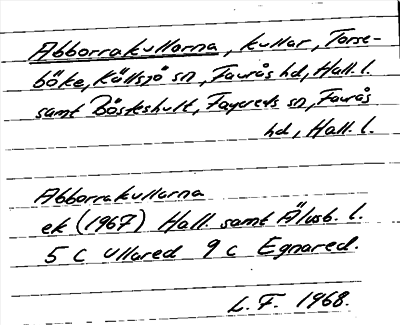 Abborrakullarna, kullar, Torse-
böke, Källsjö sn, Faurås hd, Hall. l.
samt Böskeshult, Fagereds sn, Faurås
hd, Hall. l.
Abborrakullarna
ek (1967) Hall. samt Älvsb. l.
5 C Ullared 9 c Egnared.
L. F. 1968.